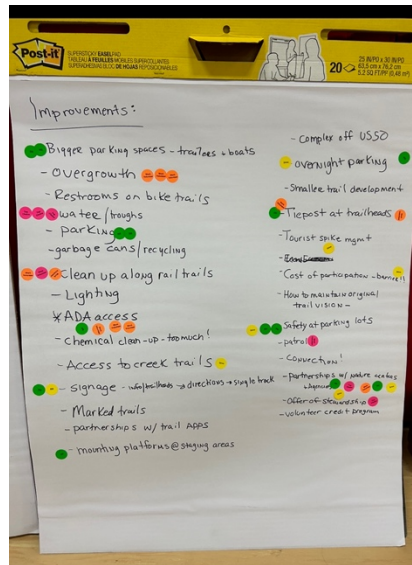 Post-it
SUPERSTICKY EASEL PAD
TABLEAU À FEUILLES MOBILES SUPERCOLLANTES
SUPERADHESIVAS BLOC DE HOJAS REPOSICIONABLES
20
25 IN/PO x 30 IN/PO
63,5 cm x 76,2 cm
5.2 SQ FT/PI² (0,48 m²)
Improvements:
- Bigger parking spaces - trailers + boats
- Overgrowth
- Restrooms on bike trails
water/troughs
- parking
- garbage cans/recycling
Clean up along rail trails
- Lighting
* ADA access
- Chemical clean-up - too much!
- Access to creek trails
- Signage - info/trailheads → directions → single track
- Marked trails
- partnerships w/ trail APPS
- mounting platforms @ staging areas
- Complex off US50
- overnight parking
- Smaller trail development
- Tiepost at trailheads
- Tourist spike mgmt
- Cost of participation - barrier
- How to maintain original
trail vision -
- Safety at parking lots
- patrol
- Connection!
- partnerships w/
- Offer of stewardship
- volunteer credit program